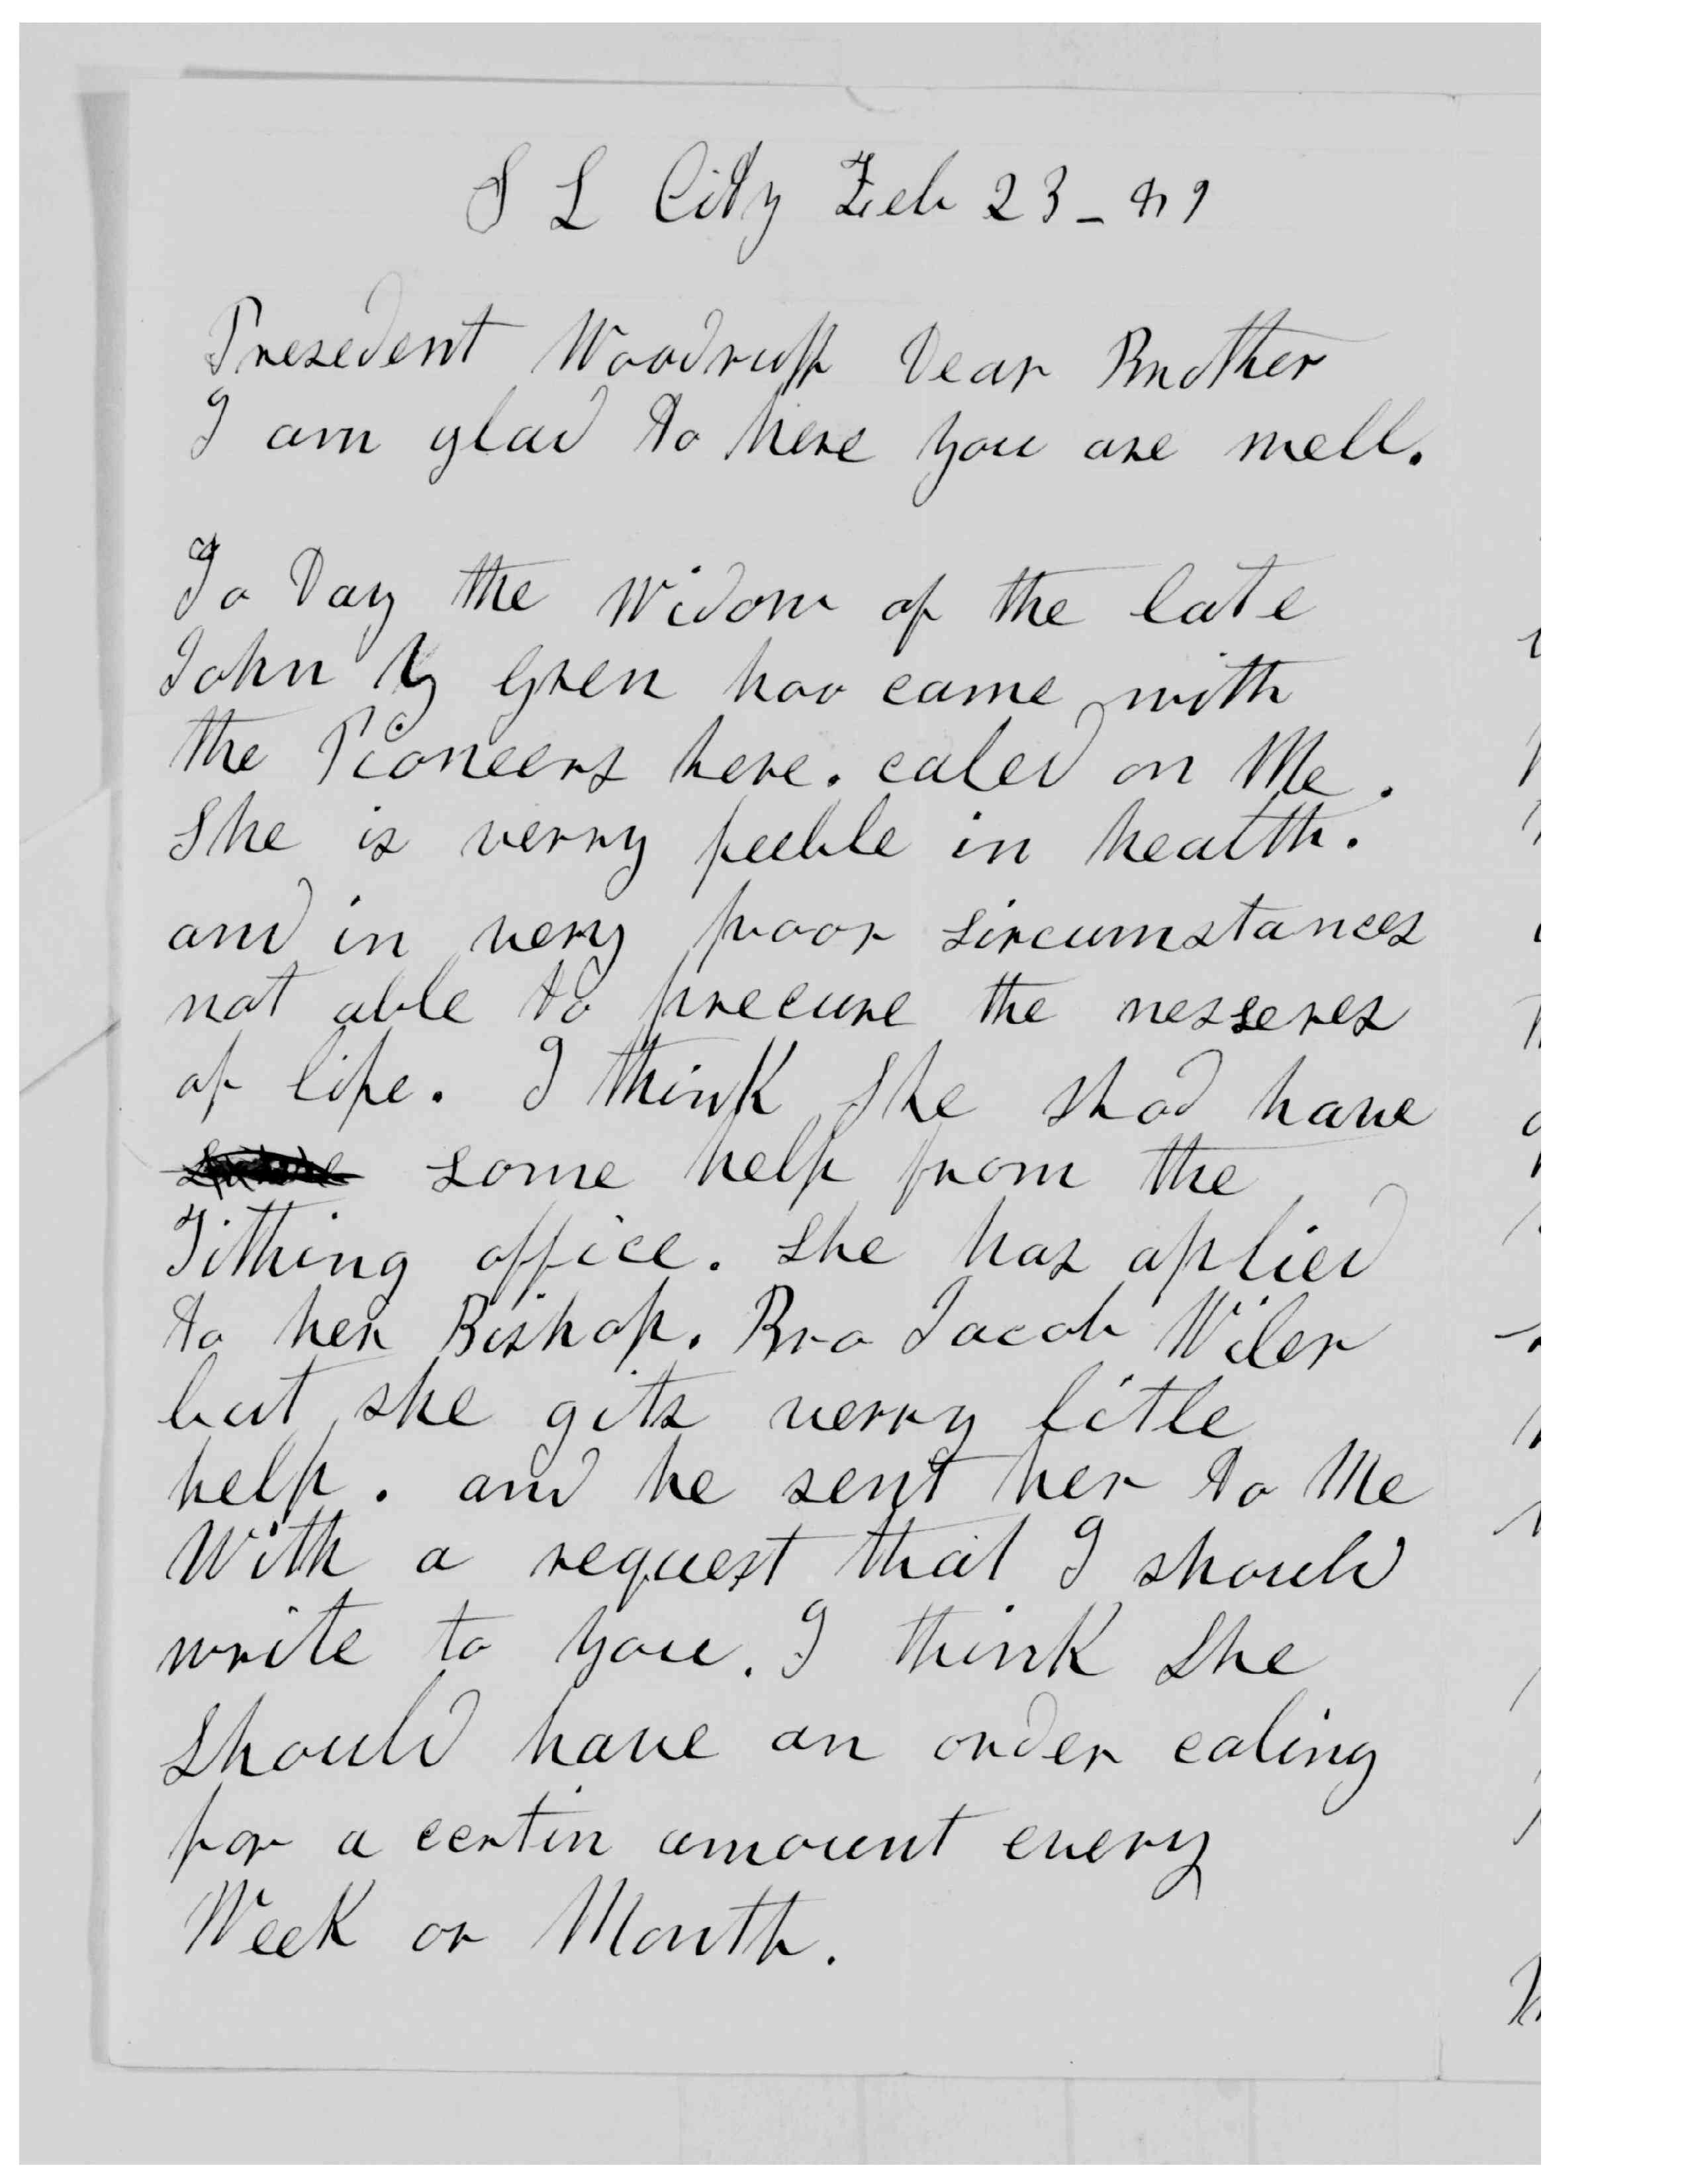 S L City Feb 23 - 89
Presedent Woodruff Dear Brother
I am glad to here you are well.
To Day the Widow of the late
John Y Gren hoo came with
the Pioneers here. caled on Me.
She is verry feeble in health.
and in very poor sircumstances
not able to precure the nesseres
of life. I think She shod have
some help from the
Tithing office. She has aplied
to her Bishop. Bro Jacob Wiler
but she gits verry litle
help. and he sent her to Me
With a request that I should
write to you. I think She
Should have an order caling
for a certin amount every
Week or Month.